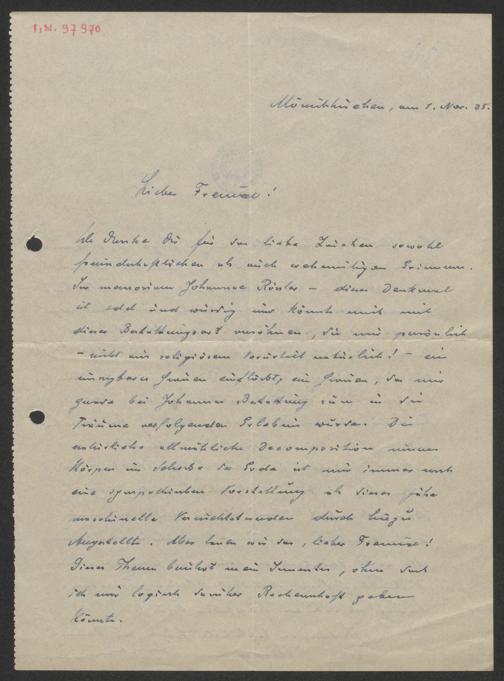 I.N. 97 970
Mönichkirchen, am 1. Nov. 35.
Lieber Freund!
Ich danke Dir für das liebe Zeichen sowohl
freundschaftlichen als auch
In memoriam Johannes Rösler – dieses Denkmal
ist edel und würdig und könnte mich mit
dieser Bestattungsart versöhnen, die mir persönlich
– nicht aus religiösem Vorurteil natürlich! – ein
Grauen einflößt, ein Grauen, das mir
gerade bei Johannes Bestattung zum in die
Träume verfolgenden Erlebnis wurde. Die
natürliche allmähliche Decomposition unseres
Körpers im Schosse der Erde ist mir immer noch
eine sympathischere Vorstellung als dieses jähe
maschinelle Vernichtetwerden durch hiezu
Angestellte. Aber lassen wir das, lieber Freund!
Dieses Thema berührt mein Innerstes, ohne dass
ich mir logisch darüber Rechenschaft geben
könnte.